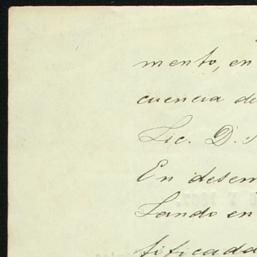 mento, en
cuencia de
Lic. D.
En desem
Lando en
tificada